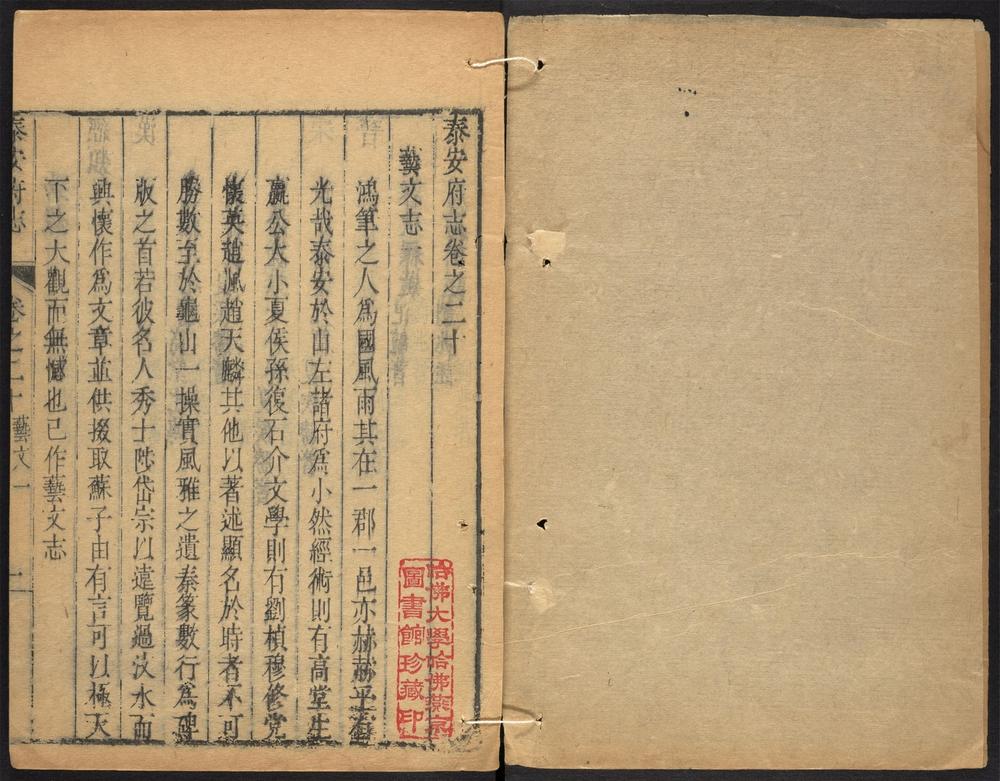 泰安府志卷之二十
藝文志
鴻筆之人為國風雨其在一郡一邑亦赫赫乎有
光哉泰安於山左諸府為小然經術則有高堂生
嬴公大小夏侯孫復石介文學則有劉楨穆修党
懷英趙渢趙天麟其他以著述顯名於時者不可
勝數至於龜山一操實風雅之遺泰篆數行為碑
版之首若彼名人秀士陟岱宗以遠覽過汶水而
興懷作為文章並供掇取蘇子由有言可以極天
下之大觀而無憾也已作藝文志
泰安府志
卷之二十
藝文一
一
哈佛大學哈佛燕京
圖書館珍藏印